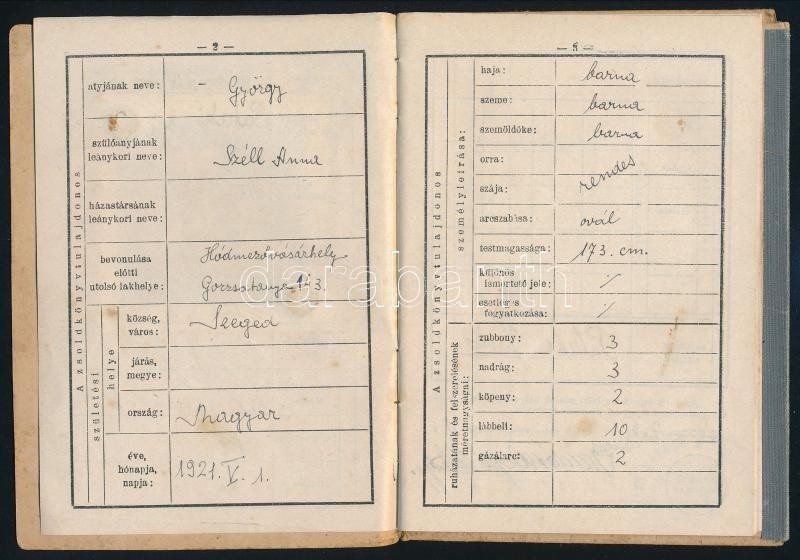 — 2 —
A zsoldkönyvtulajdonos
atyjának neve: – György
szülőanyjának
leánykori neve: Széll Anna
házastársának
leánykori neve:
bevonulása
előtti
utolsó lakhelye:
Hódmezővásárhely
Gorzsatanya 143.
születési
helye
község,
város: Szeged
járás,
megye:
ország: Magyar
éve,
hónapja,
napja: 1921. V. 1.
— 3 —
A zsoldkönyvtulajdonos
személyleírása:
haja: barna
szeme: barna
szemöldöke: barna
orra:
rendes
szája:
arcszabása: ovál
testmagassága: 173. cm.
különös
ismertető jele: ٪
esetleges
fogyatkozása: ٪
ruházatának és felszerelésének
méretnagyságai:
zubbony: 3
nadrág: 3
köpeny: 2
lábbeli: 10
gázálarc: 2
darabanth